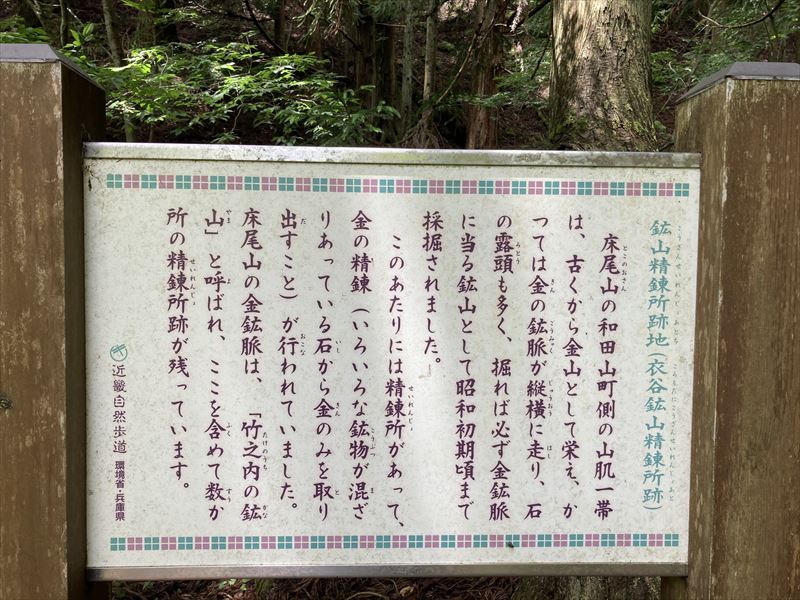 鉱山精錬所跡地(衣谷鉱山精錬所跡)
床尾山の和田山町側の山肌一帯
は、古くから金山として栄え、か
つては金の鉱脈が縦横に走り、石
の露頭も多く、掘れば必ず金鉱脈
に当る鉱山として昭和初期頃まで
採掘されました。
このあたりには精錬所があって、
金の精錬(いろいろな鉱物が混ざ
りあっている石から金のみを取り
出すこと)が行われていました。
床尾山の金鉱脈は、「竹之内の鉱
山」と呼ばれ、ここを含めて数か
所の精錬所跡が残っています。
近畿自然歩道 環境省・兵庫県